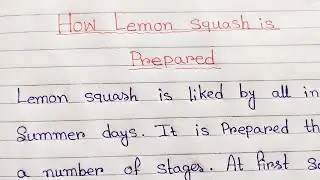 How Lemon squash is
Prepared
Lemon squash is liked by all in
Summer days. It is Prepared th
a number of stages. At first so